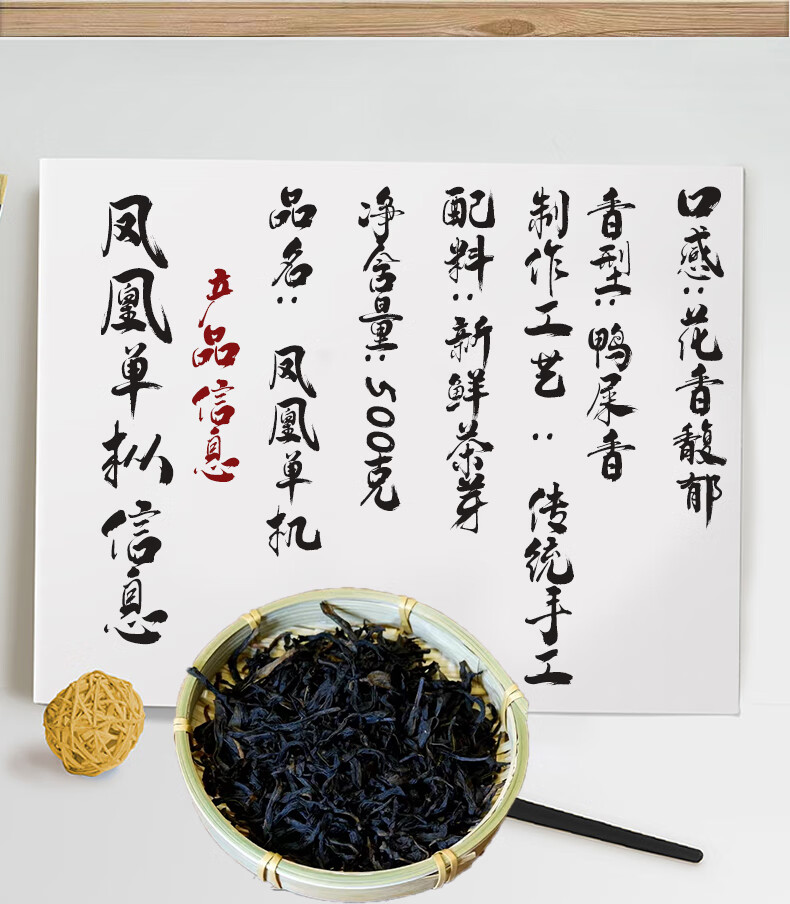 凤凰单枞信息
产品信息
品名：凤凰单机
净含量：500克
配料：新鲜茶芽
制作工艺：传统手工
香型：鸭屎香
口感：花香馥郁